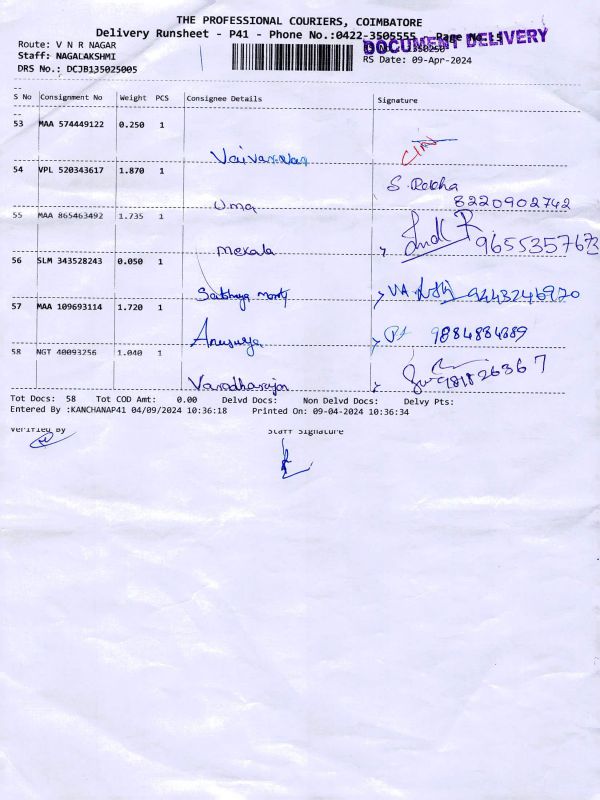 THE PROFESSIONAL COURIERS, COIMBATORE
Delivery Runsheet - P41 - Phone No.:0422-3506555 Page No.: 5
DOCUMENT DELIVERY
Route: V N R NAGAR
Staff: NAGALAKSHMI
RS Date: 09-Apr-2024
DRS No.: DCJB135025005
S No Consignment No Weight PCS Consignee Details Signature
53 MAA 574449122 0.250 1
54 VPL 520343617 1.870 1
S. Rekha
Uma 8220902742
55 MAA 865463492 1.735 1
Mekala
56 SLM 343528243 0.050 1
57 MAA 109693114 1.720 1
Anusurya 9884884889
58 NGT 40093256 1.040 1
Varadharajan
Tot Docs: 58 Tot COD Amt: 0.00 Delvd Docs: Non Delvd Docs: Delvy Pts:
Entered By :KANCHANAP41 04/09/2024 10:36:18 Printed On: 09-04-2024 10:36:34
Verified By Staff Signature